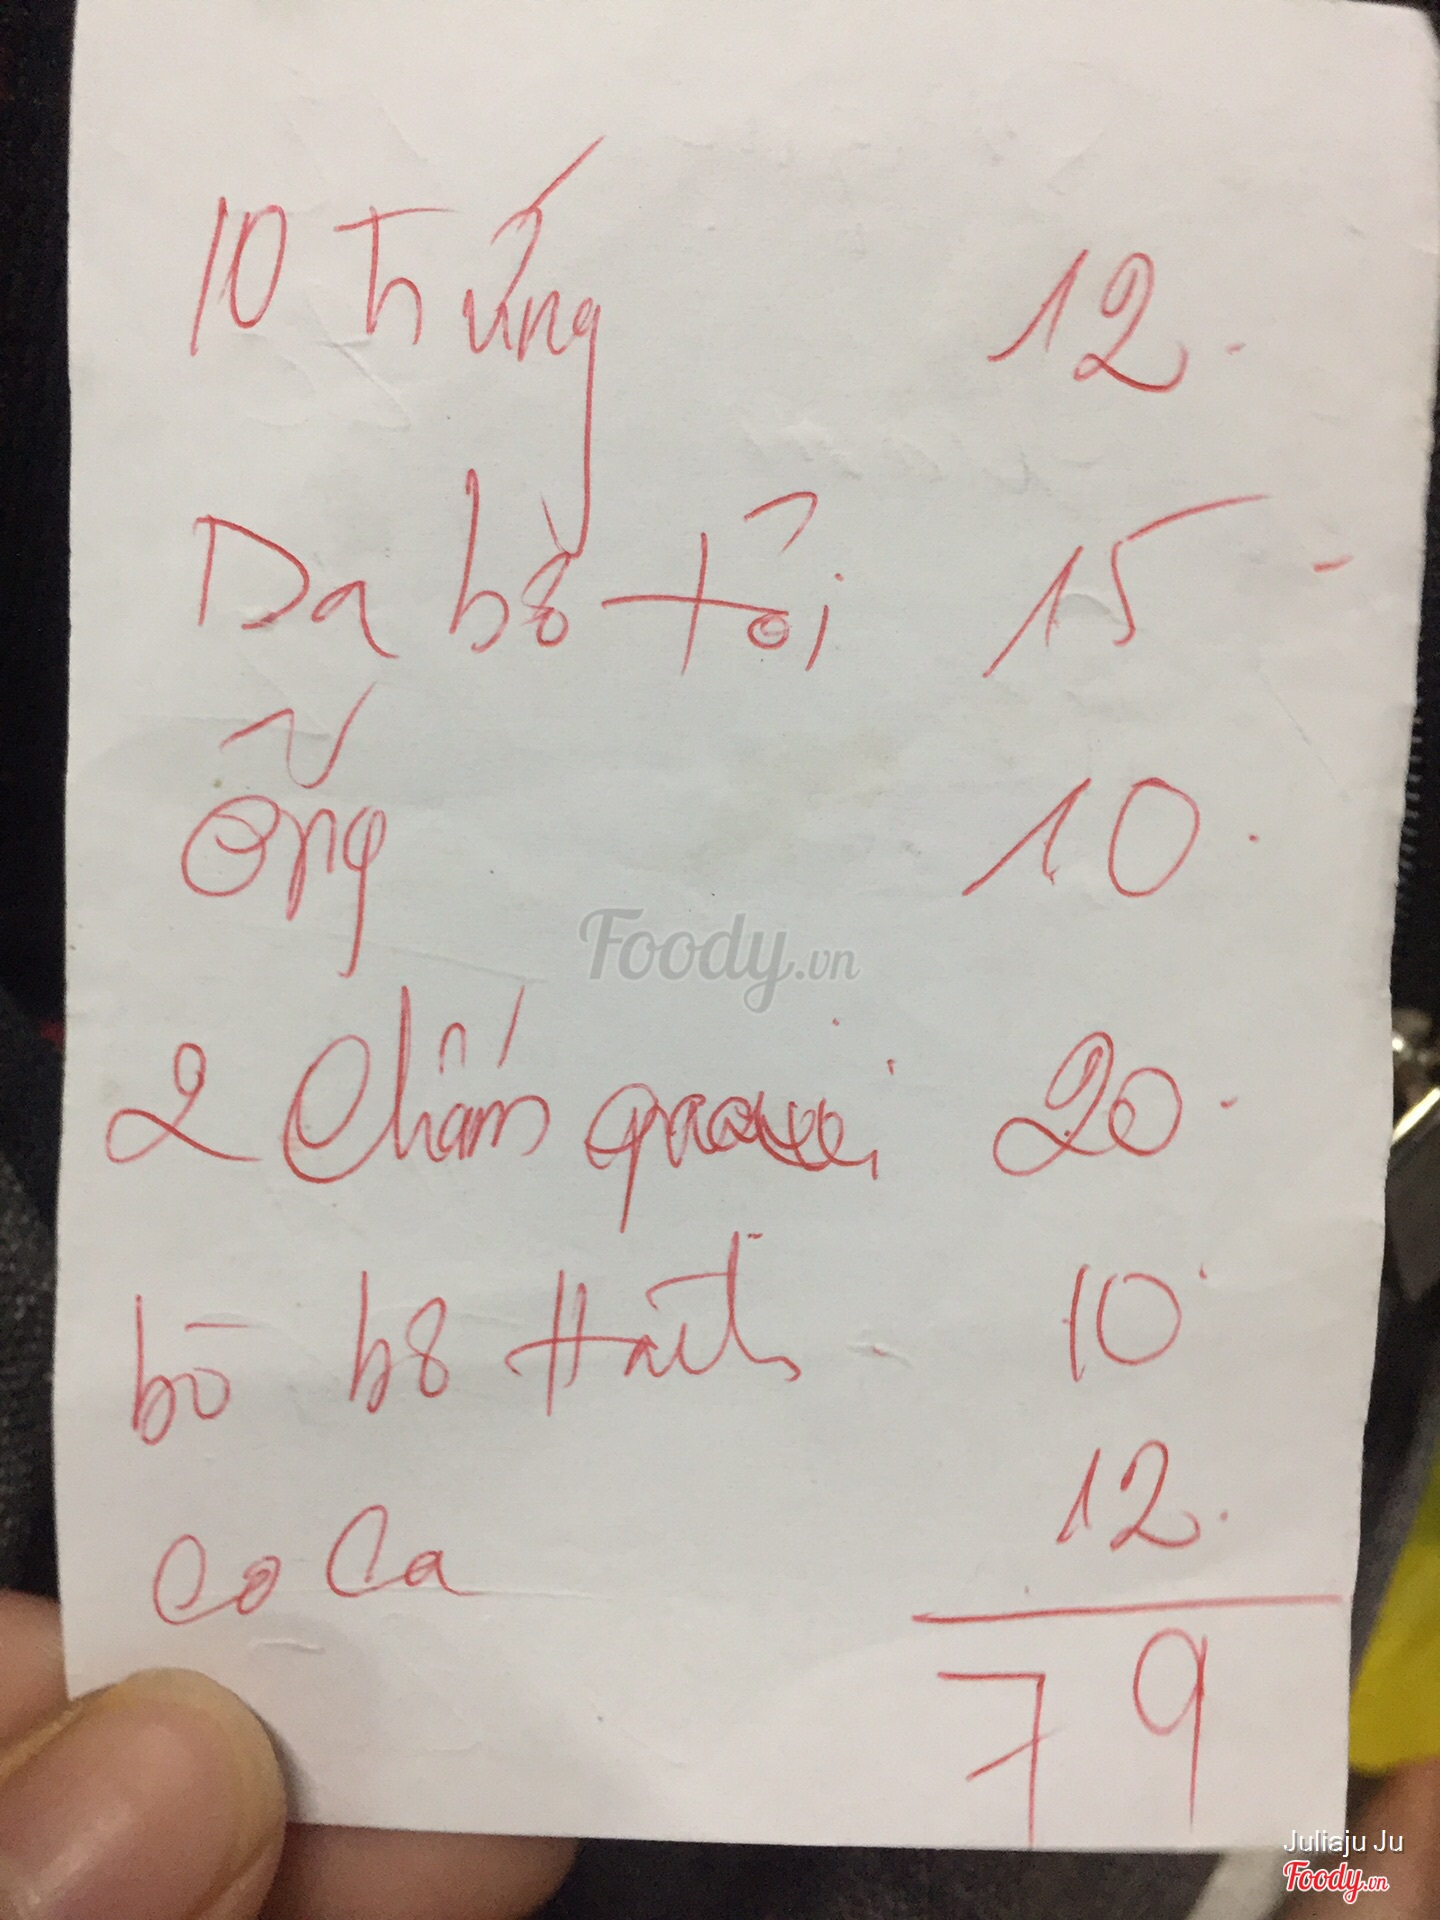 10 trứng 12.
Da bò tỏi 15 -
Õng 10.
2 Chấm 20 -
bò bò 10
CoCa 12.
79
Foody.vn
Juliaju Ju
Foody.vn